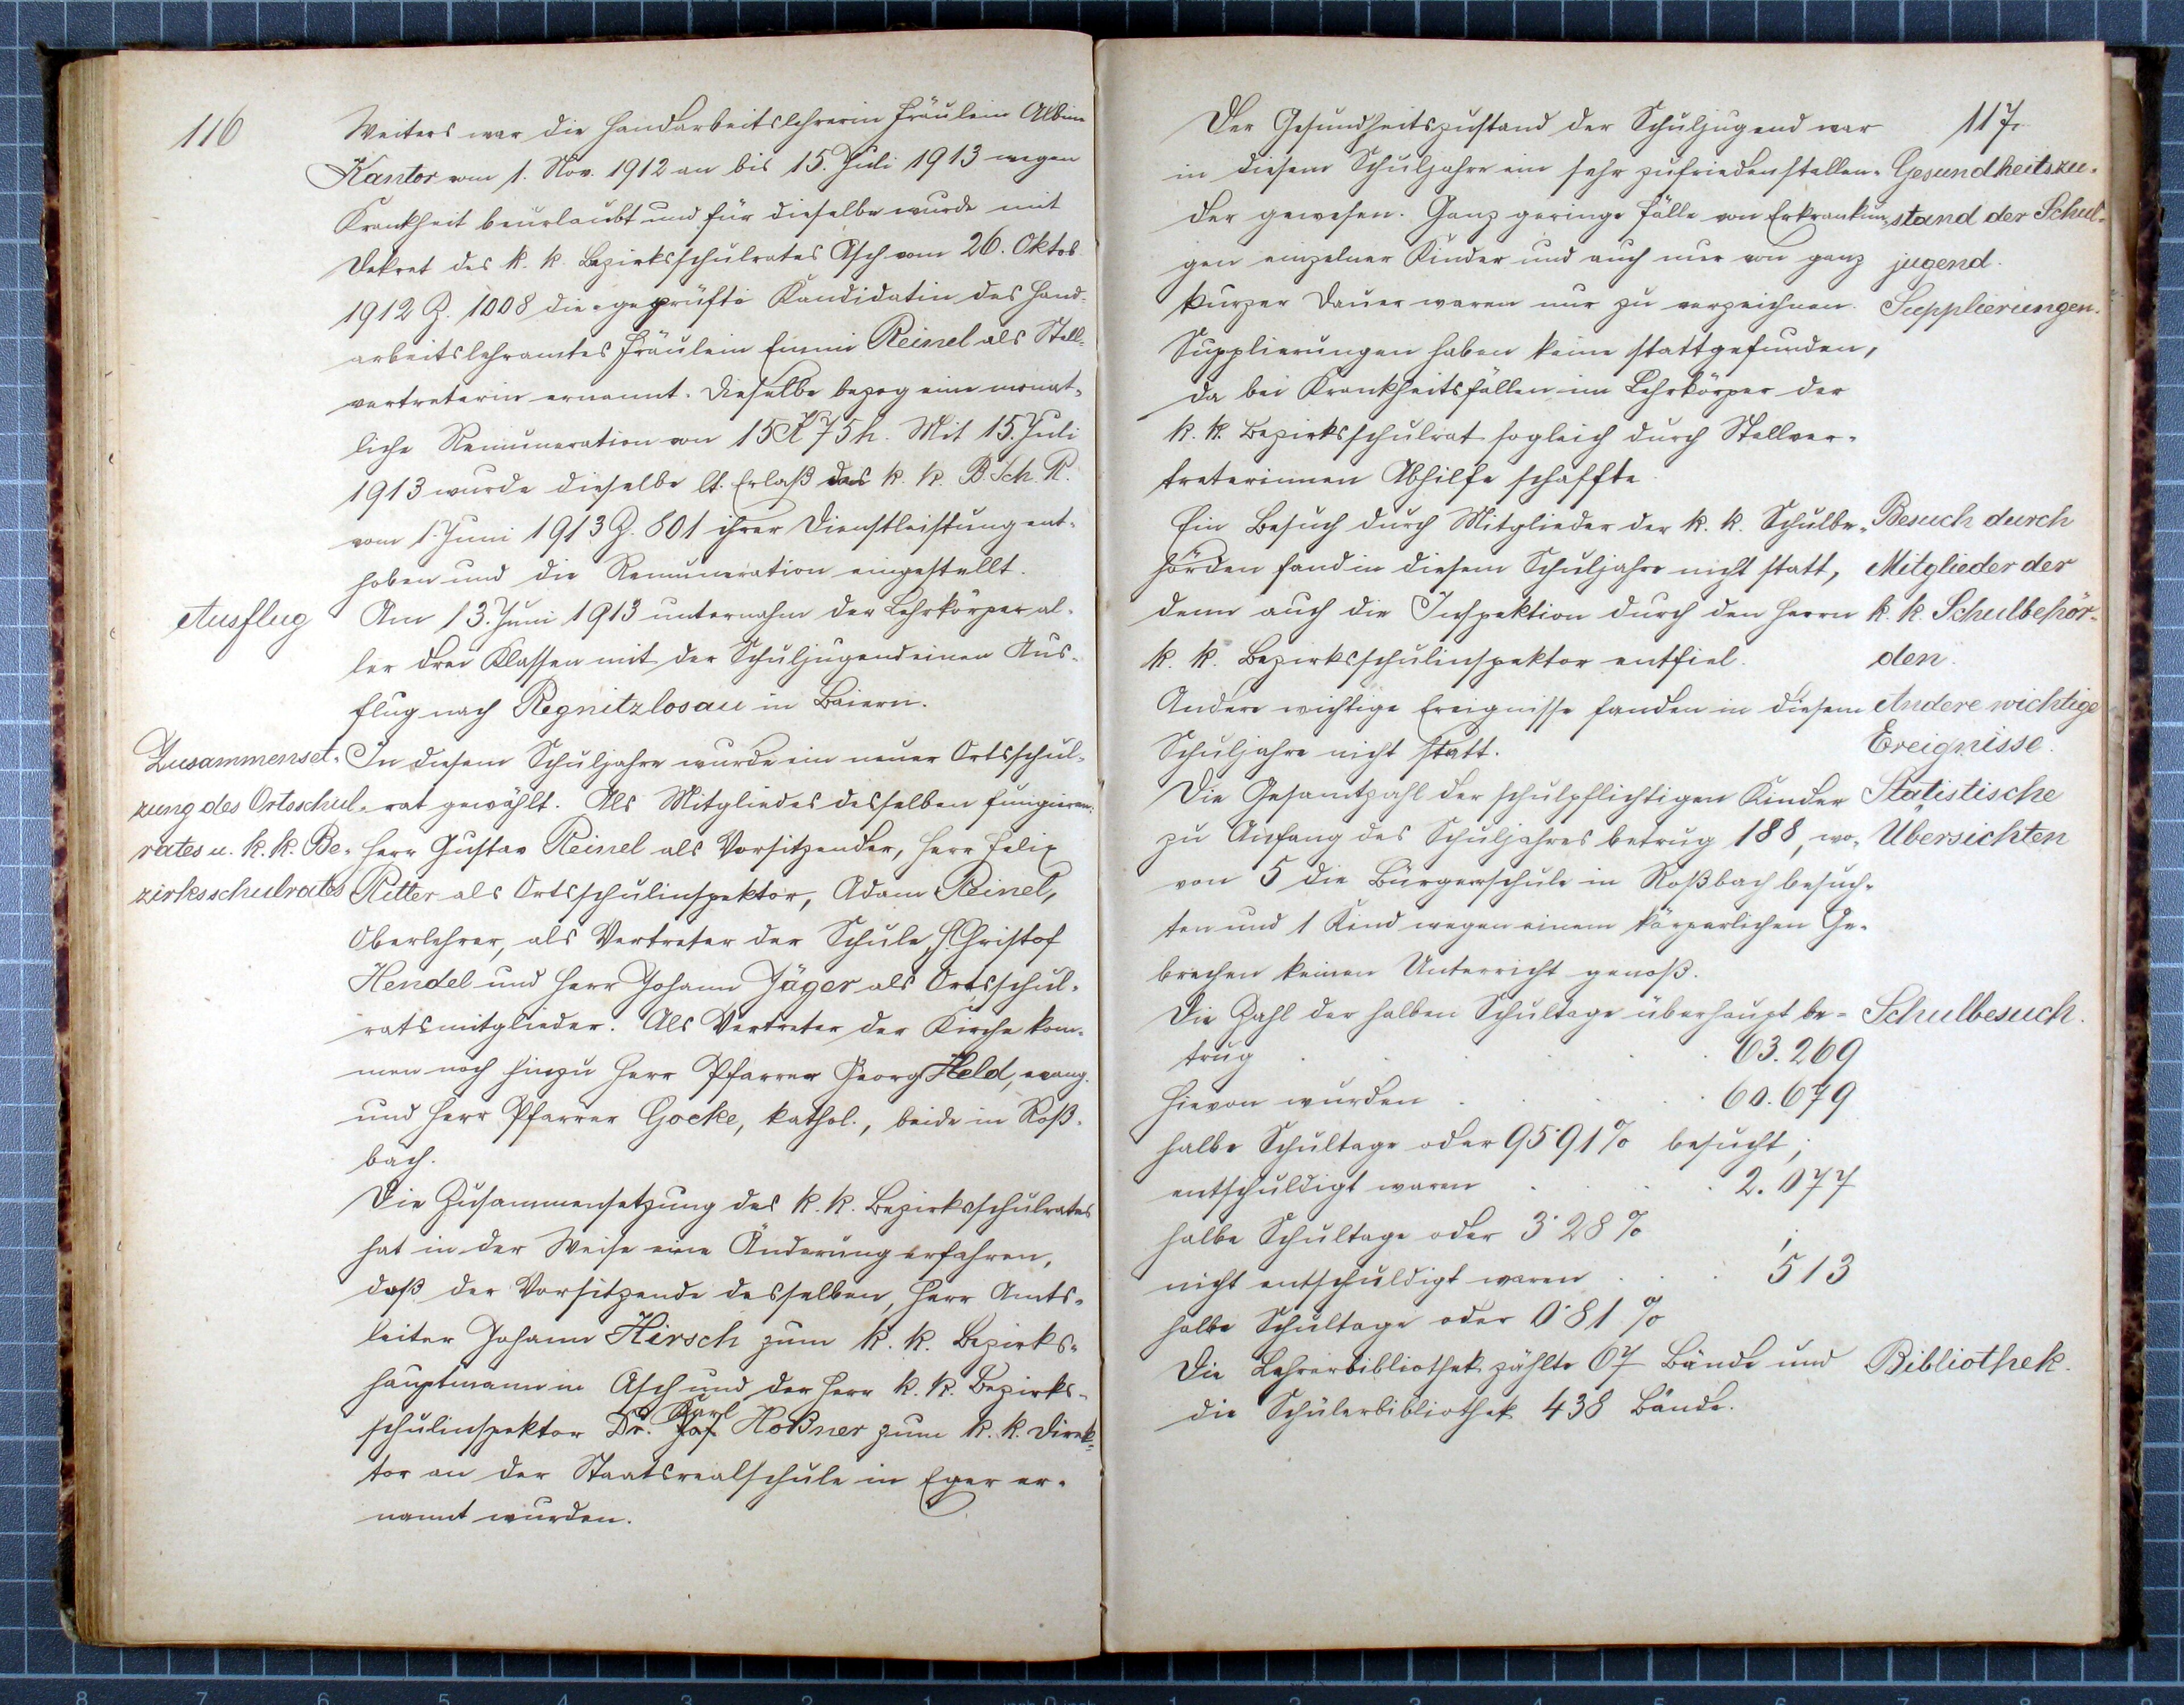 116
Weiters war die Handarbeitslehrerin Fräulein Albine
Kantor vom 1. Nov. 1912 an bis 15. Juli 1913 wegen
Krankheit beurlaubt und für dieselbe wurde mit
Dekret des k. k. Bezirksschulrates Asch vom 26. Oktob.
1912 Z. 1008 die geprüfte Kandidatin des Hand-
arbeitslehramtes Fräulein Emmi Reinel als Stell-
vertreterin ernannt. Dieselbe bezog eine monat-
liche Remuneration von 15 K 75 h. Mit 15. Juli
1913 wurde dieselbe lt. Erlaß des k. k. B. Sch. R.
vom 1. Juni 1913 Z. 601 ihrer Dienstleistung ent-
hoben und die Remuneration eingestellt.
Ausflug
Am 13. Juni 1913 unternahm der Lehrkörper al-
ler drei Klassen mit der Schuljugend einen Aus-
flug nach Regnitzlosau in Baiern.
Zusammenset-
zung des Ortsschul-
rates u. k. k. Be-
zirksschulrates
In diesem Schuljahre wurde ein neuer Ortsschul-
rat gewählt. Als Mitglieder desselben fungieren:
Herr Gustav Reinel als Vorsitzender, Herr Felix
Ritter als Ortsschulinspektor, Adam Reinel,
Oberlehrer, als Vertreter der Schule, H. Christof
Hendel und Herr Johann Jäger als Ortsschul-
ratsmitglieder. Als Vertreter der Kirche kom-
men noch hinzu Herr Pfarrer Georg Held, evang.
und Herr Pfarrer Gocke, kathol., beide in Roß-
bach.
Die Zusammensetzung des k. k. Bezirksschulrates
hat in der Weise eine Änderung erfahren,
daß der Vorsitzende desselben, Herr Amts-
leiter Johann Hirsch zum k. k. Bezirks-
hauptmann in Asch und der Herr k. k. Bezirks-
Karl
schulinspektor Dr. Jos. Hoßner zum k. k. Direk-
tor an der Staatsrealschule in Eger er-
nannt wurden.
117.
Der Gesundheitszustand der Schuljugend war
in diesem Schuljahre ein sehr zufriedenstellen-
der gewesen. Ganz geringe Fälle von Erkrankun-
gen einzelner Kinder und auch nur von ganz
kurzer Dauer waren nur zu verzeichnen.
Gesundheitszu-
stand der Schul-
jugend.
Supplierungen.
Supplierungen haben keine stattgefunden,
da bei Krankheitsfällen im Lehrkörper der
k. k. Bezirksschulrat sogleich durch Stellver-
treterinnen Abhilfe schaffte.
Ein Besuch durch Mitglieder der k. k. Schulbe-
hörden fand in diesem Schuljahre nicht statt,
denn auch die Inspektion durch den Herrn
k. k. Bezirksschulinspektor entfiel.
Besuch durch
Mitglieder der
k. k. Schulbehör-
den.
Andere wichtige Ereignisse fanden in diesem
Schuljahre nicht statt.
Andere wichtige
Ereignisse.
Die Gesamtzahl der schulpflichtigen Kinder
zu Anfang des Schuljahres betrug 188, wo-
von 5 die Bürgerschule in Roßbach besuch-
ten und 1 Kind wegen einem körperlichen Ge-
brechen keinen Unterricht genoß.
Statistische
Übersichten
Die Zahl der halben Schultage überhaupt be-
trug . . . . . 63.269
Schulbesuch.
Hievon wurden . . . 60.679
halbe Schultage oder 95·91% besucht;
entschuldigt waren . . . 2.077
halbe Schultage oder 3·28% ;
nicht entschuldigt waren . . . 513
halbe Schultage oder 0·81%
Die Lehrerbibliothek zählte 67 Bände und
die Schülerbibliothek 438 Bände.
Bibliothek.